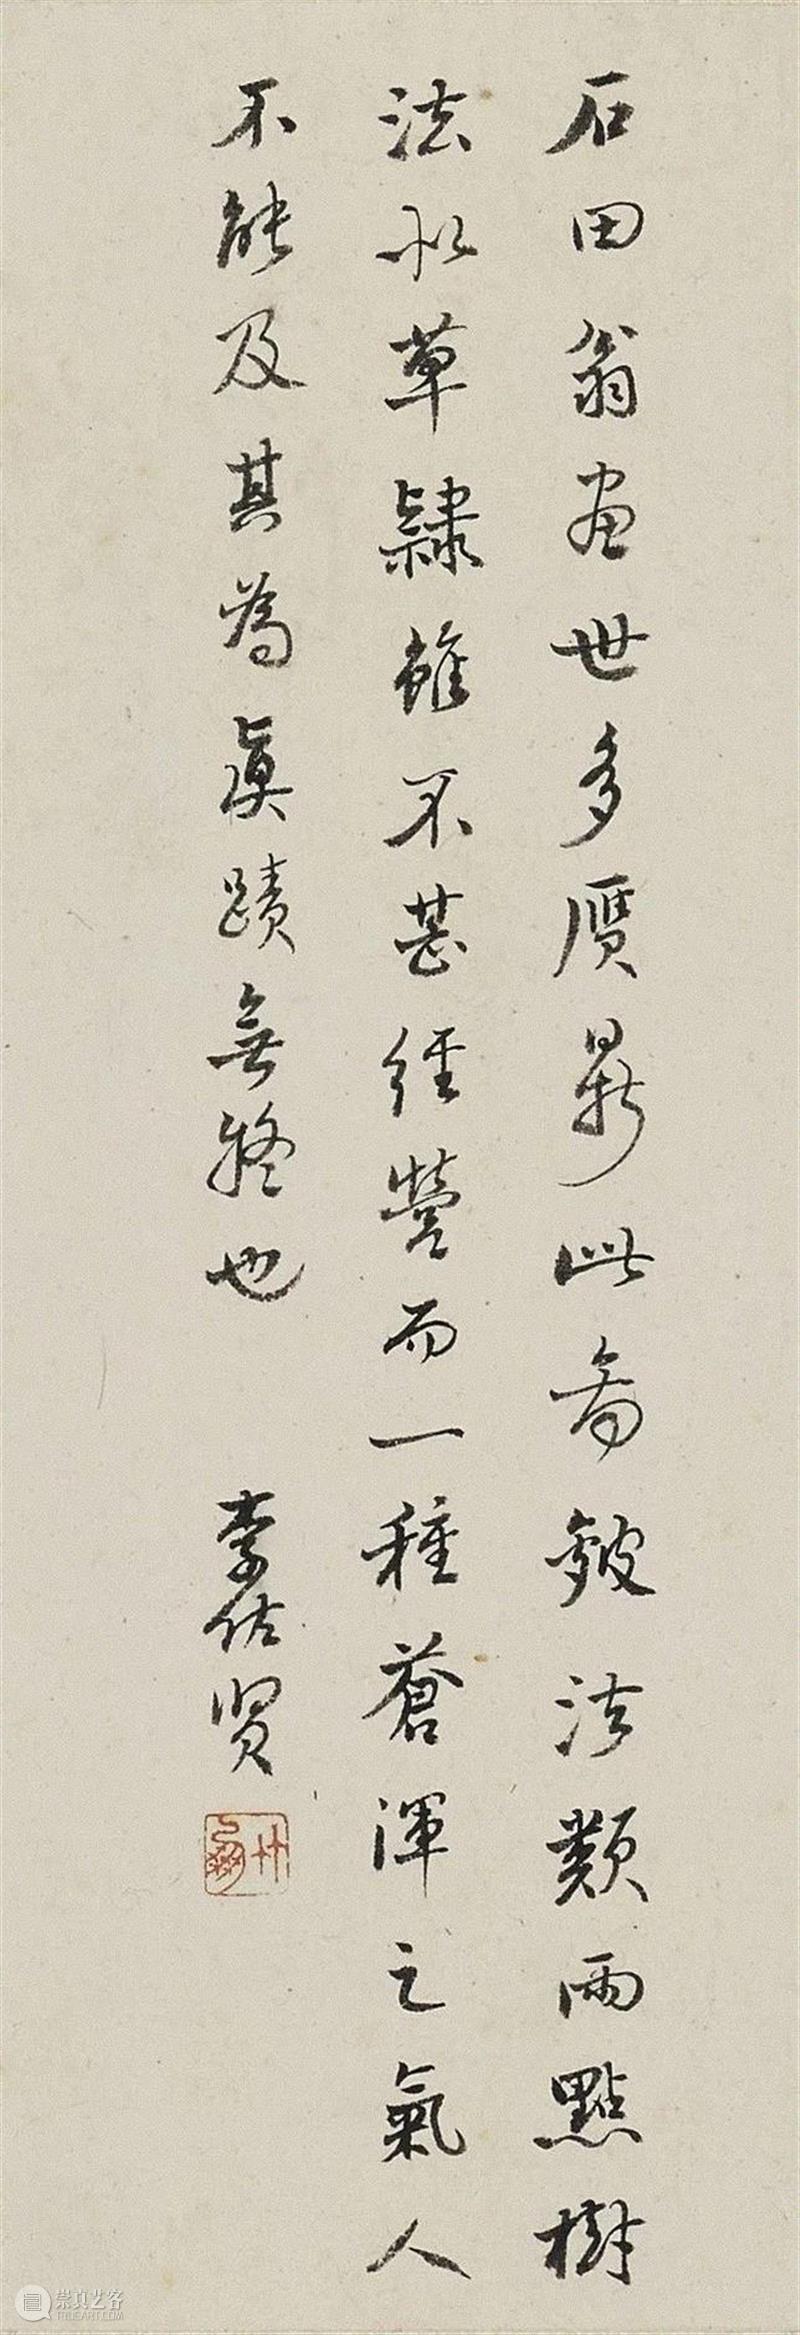 石田翁畫世多贋鼎此畣皴法類雨點樹
法似草隸雖不甚經營而一種蒼渾之氣人
不能及其為真蹟無疑也
李佐贤
竹朋
崇真艺客
TRUEART.COM